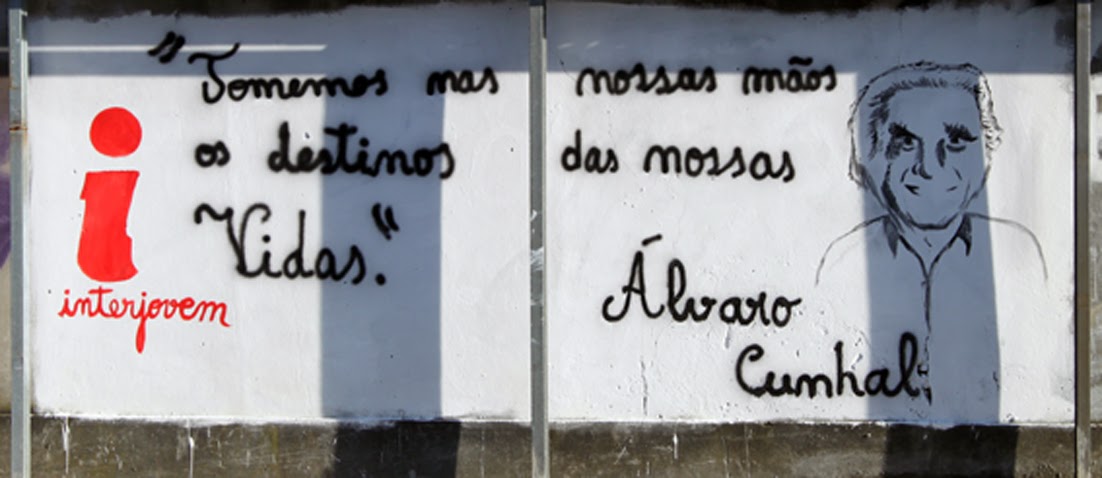 "Tomemos nas nossas mãos
os destinos das nossas
Vidas."
Álvaro
Cunhal
i
interjovem